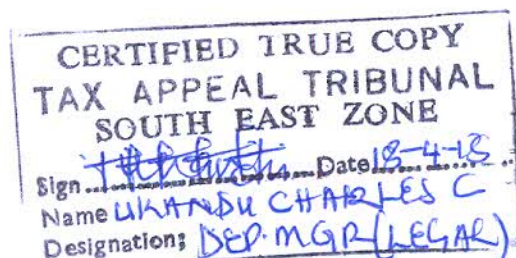 CERTIFIED TRUE COPY
TAX APPEAL TRIBUNAL
SOUTH EAST ZONE
Sign Date 18-4-13
Name UKANDU CHARLES C
Designation; DEP. MGR (LEGAL)